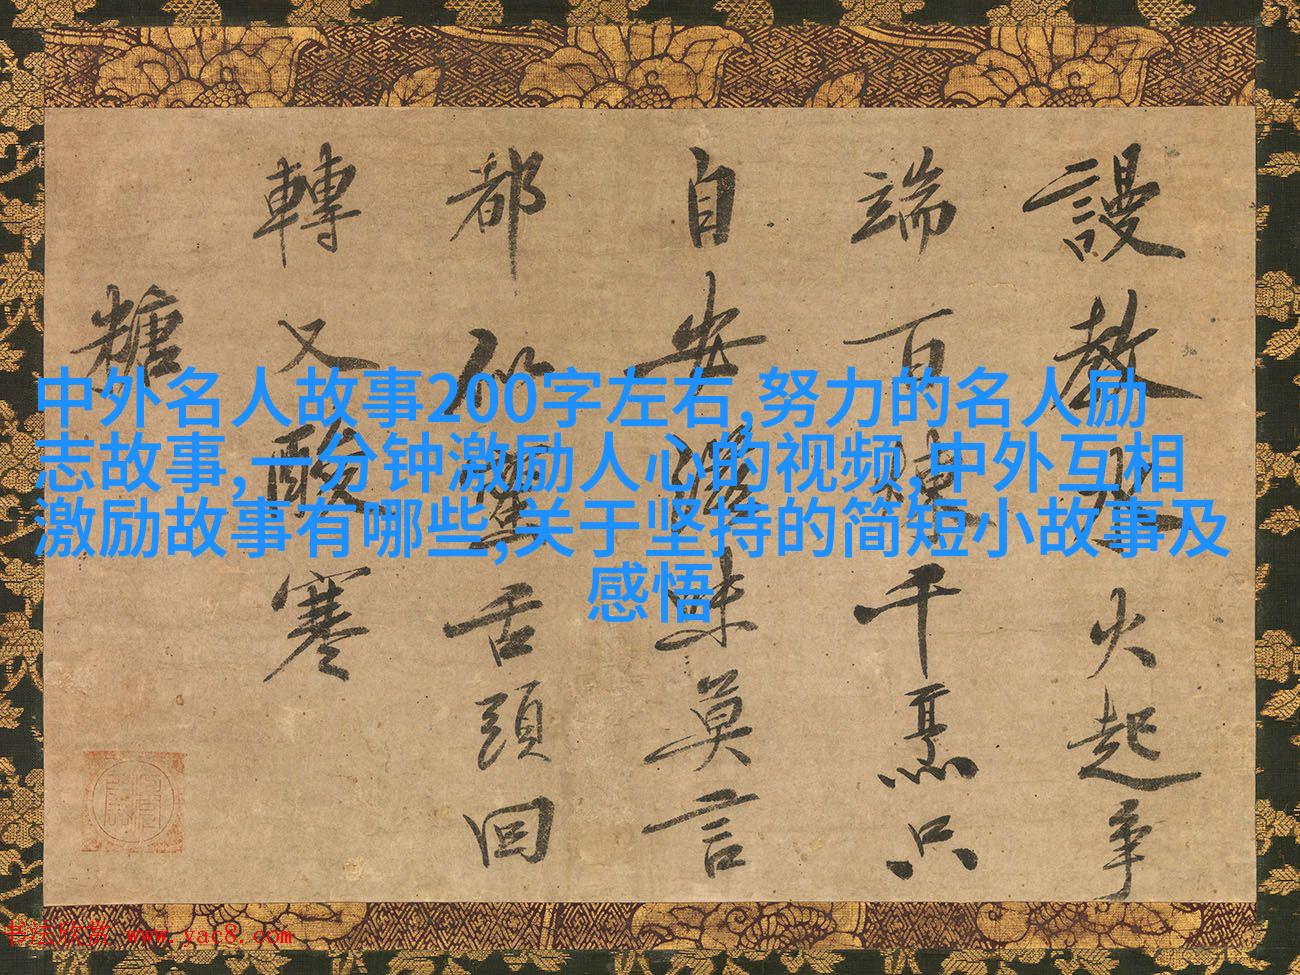 謾教火起爭
端百千烹只
自安滋味莫言
都似舌頭回
轉又酸寒
糖
中外名人故事200字左右,努力的名人励
志故事,一分钟激励人心的视频,中外互相
激励故事有哪些,关于坚持的简短小故事及
感悟
书法欣赏 www.yac8.com